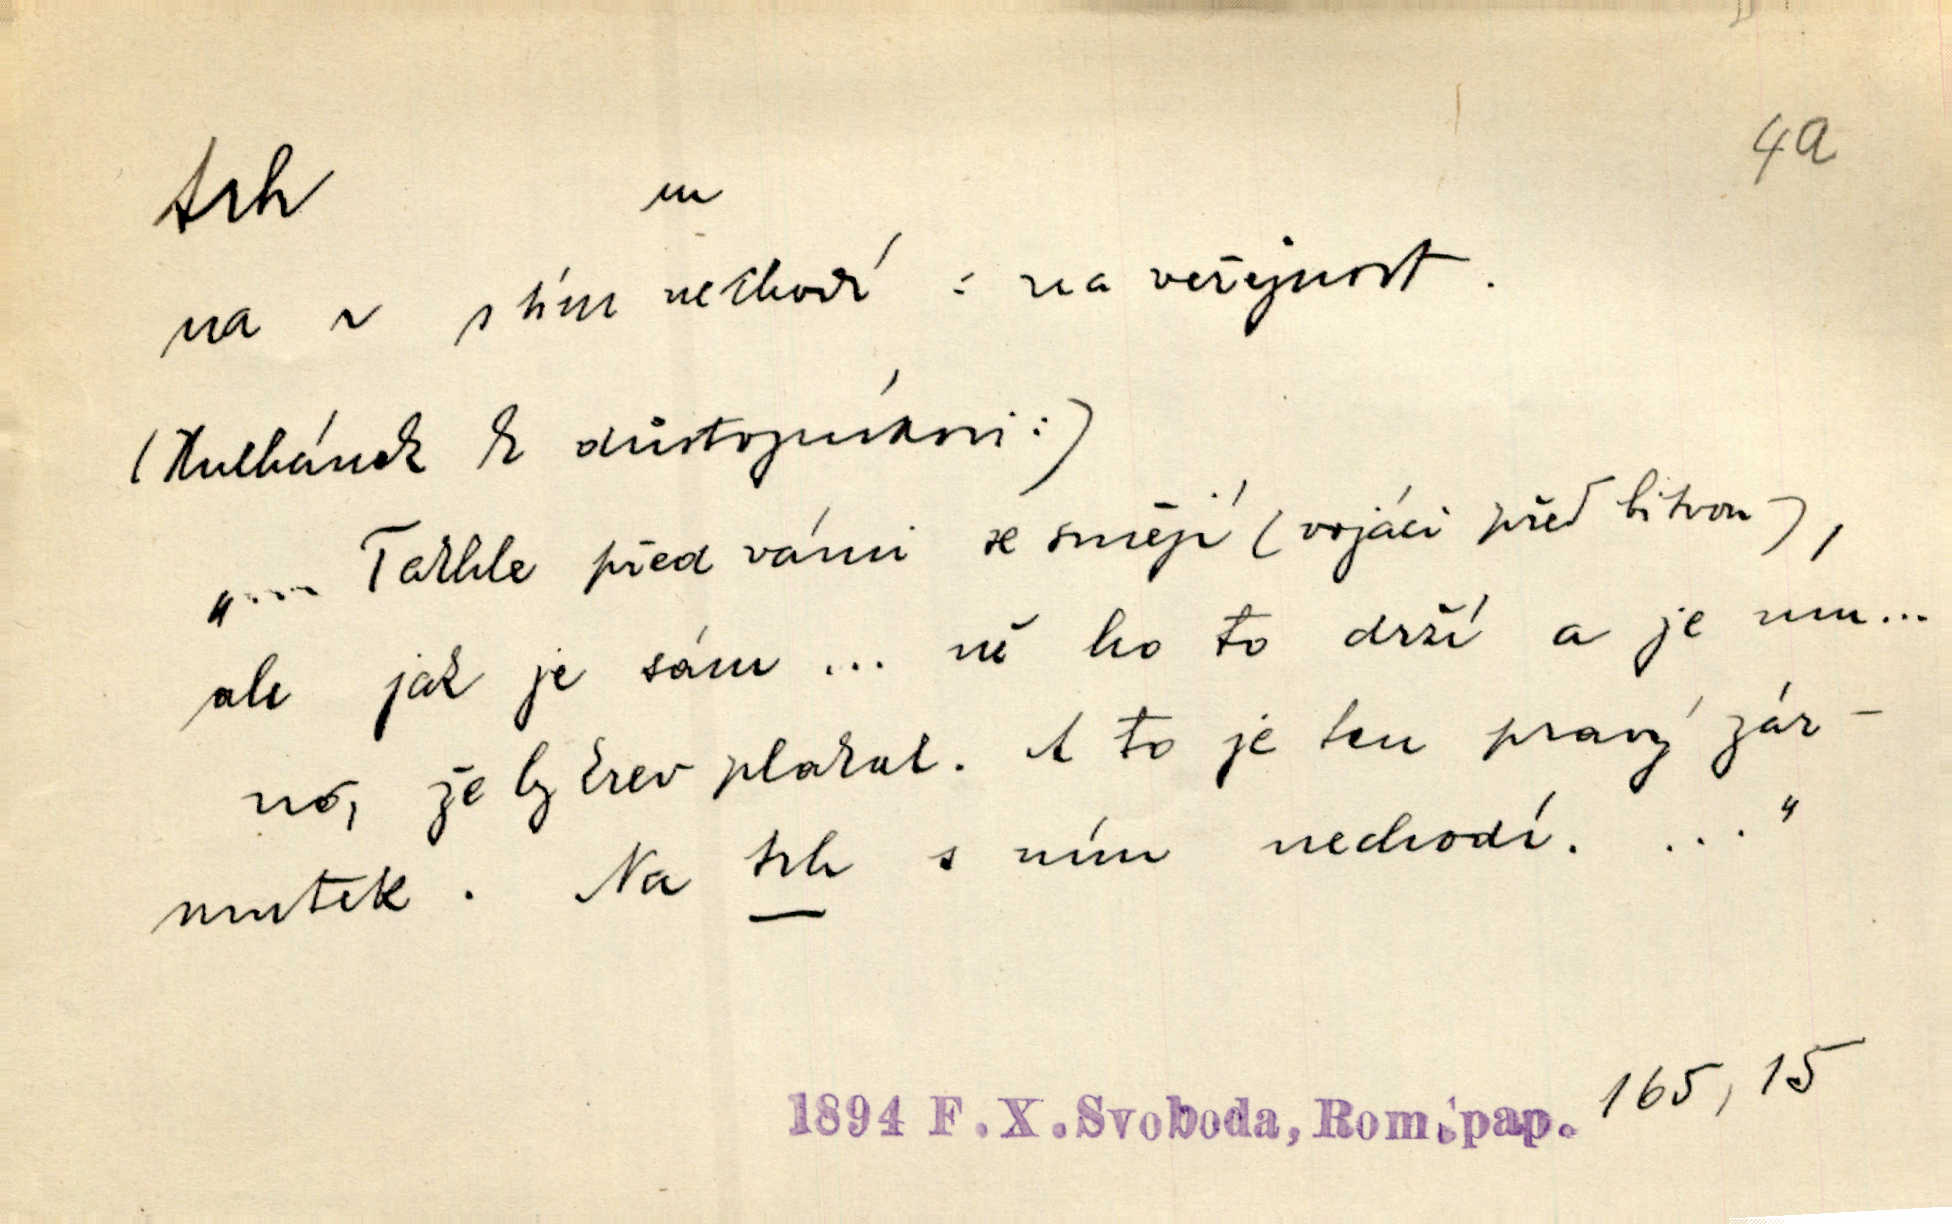 4a
trh m
na ~ s tím nechodí : na veřejnost.
(Kulhánek k důstojníkovi:)
„.... Takhle před vámi se smějí (vojáci před bitvou),
ale jak je sám ... už ho to drží a je mu...
no, že by krev plakal. A to je ten pravý zár-
mutek. Na trh s ním nechodí. ..."
1894 F.X.Svoboda, Rom.pap. 165, 15